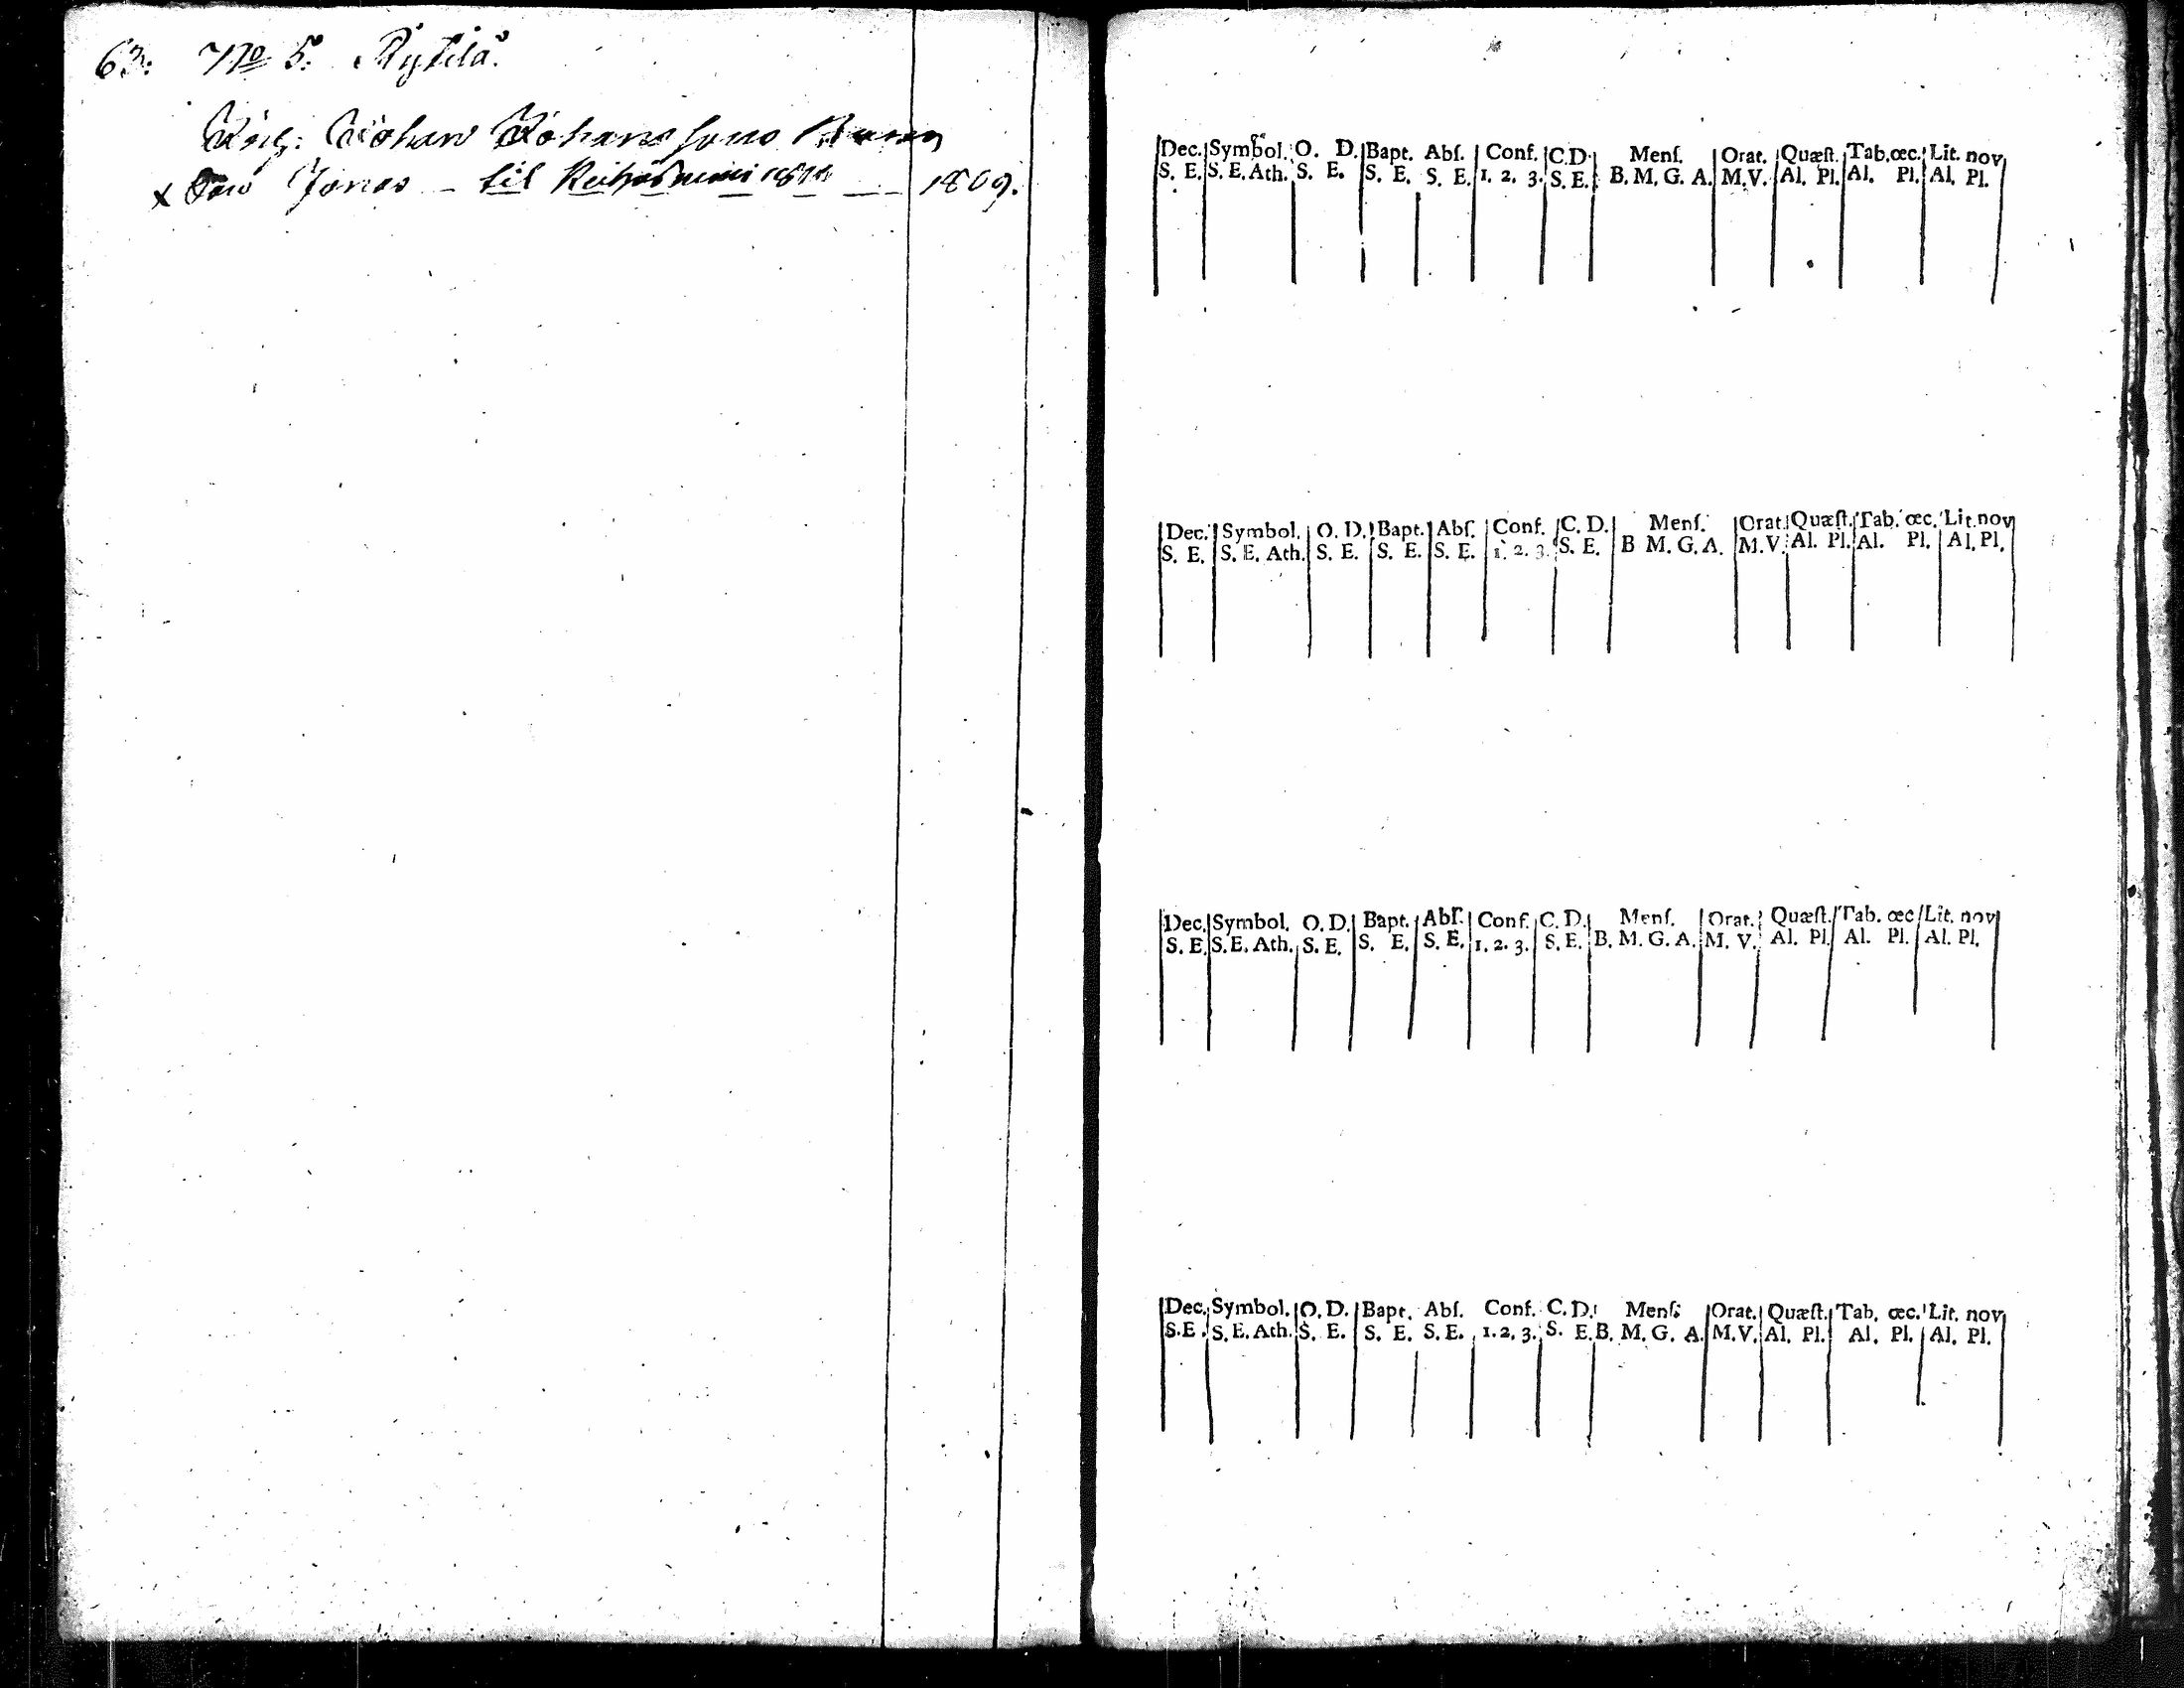 63. No 5. Rytilä.
Johan Johanssons Barn
x Son Jonas – til 1809.
Dec. Symbol. O. D. Bapt. Abſ. Conf. C.D. Menſ. Orat. Quæſt. Tab. œc. Lit. nov
S. E. S. E. Ath. S. E. S. E. S. E. 1. 2. 3. S. E. B. M. G. A. M.V. Al. Pl. Al. Pl. Al. Pl.
Dec. Symbol. O. D. Bapt. Abſ. Conf. C. D. Menſ. Orat. Quæſt. Tab. œc. Lit. nov
S. E. S. E. Ath. S. E. S. E. S. E. 1. 2. 3. S. E. B M. G. A. M.V. Al. Pl. Al. Pl. Al. Pl.
Dec. Symbol. O. D. Bapt. Abſ. Conf. C. D. Menſ. Orat. Quæſt. Tab. œc Lit. nov
S. E. S. E. Ath. S. E. S. E. S. E. 1. 2. 3. S. E. B. M. G. A. M. V. Al. Pl. Al. Pl. Al. Pl.
Dec. Symbol. O. D. Bapt. Abſ. Conf. C. D. Menſ. Orat. Quæſt. Tab. œc. Lit. nov
S. E. S. E. Ath. S. E. S. E. S. E. 1. 2. 3. S. E. B. M. G. A. M. V. Al. Pl. Al. Pl. Al. Pl.